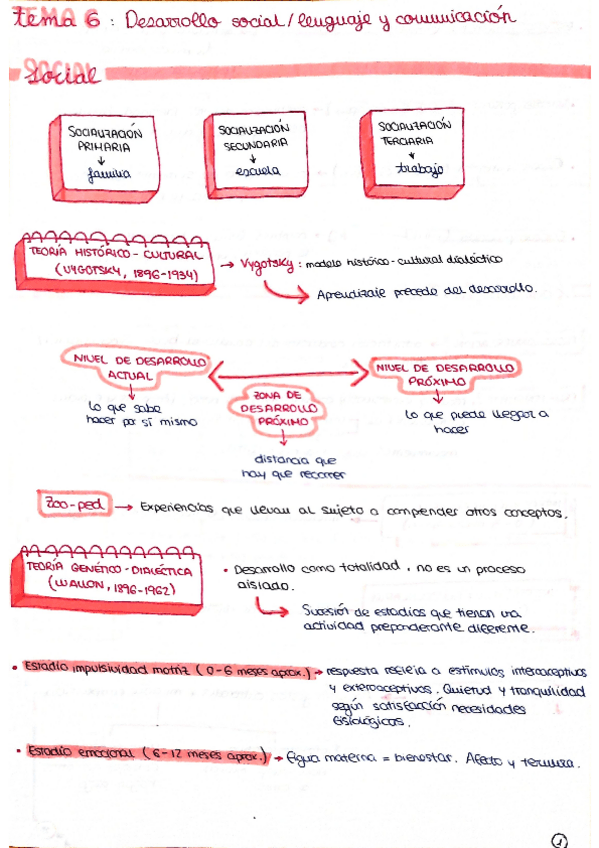 tema 6 : Desarrollo social/lenguaje y comunicación
Social
SOCIALIZACIÓN
PRIMARIA
↓
familia
SOCIALIZACIÓN
SECUNDARIA
↓
escuela
SOCIALIZACIÓN
TERCIARIA
↓
trabajo
TEORÍA HISTÓRICO-CULTURAL
(VYGOTSKY, 1896-1934)
→ Vygotsky: modelo histórico-cultural dialéctico
Aprendizaje precede del desarrollo.
NIVEL DE DESARROLLO
ACTUAL
lo que sabe
hacer por sí mismo
ZONA DE
DESARROLLO
PRÓXIMO
distancia que
hay que recorrer
NIVEL DE DESARROLLO
PRÓXIMO
lo que puede llegar a
hacer
Zoo-ped → Experiencias que llevan al sujeto a comprender otros conceptos.
TEORÍA GENÉTICO-DIALÉCTICA
(WALLON, 1896-1962)
• Desarrollo como totalidad, no es un proceso
aislado.
Sucesión de estadios que tienen una
actividad preponderante diferente.
• Estadio impulsividad motriz (0-6 meses aprox.) → respuesta refleja a estímulos interoceptivos
y exteroceptivos. Quietud y tranquilidad
según satisfacción necesidades
fisiológicas.
• Estadio emocional (6-12 meses aprox.) → figua materna = bienestar. Afecto y ternura.
1